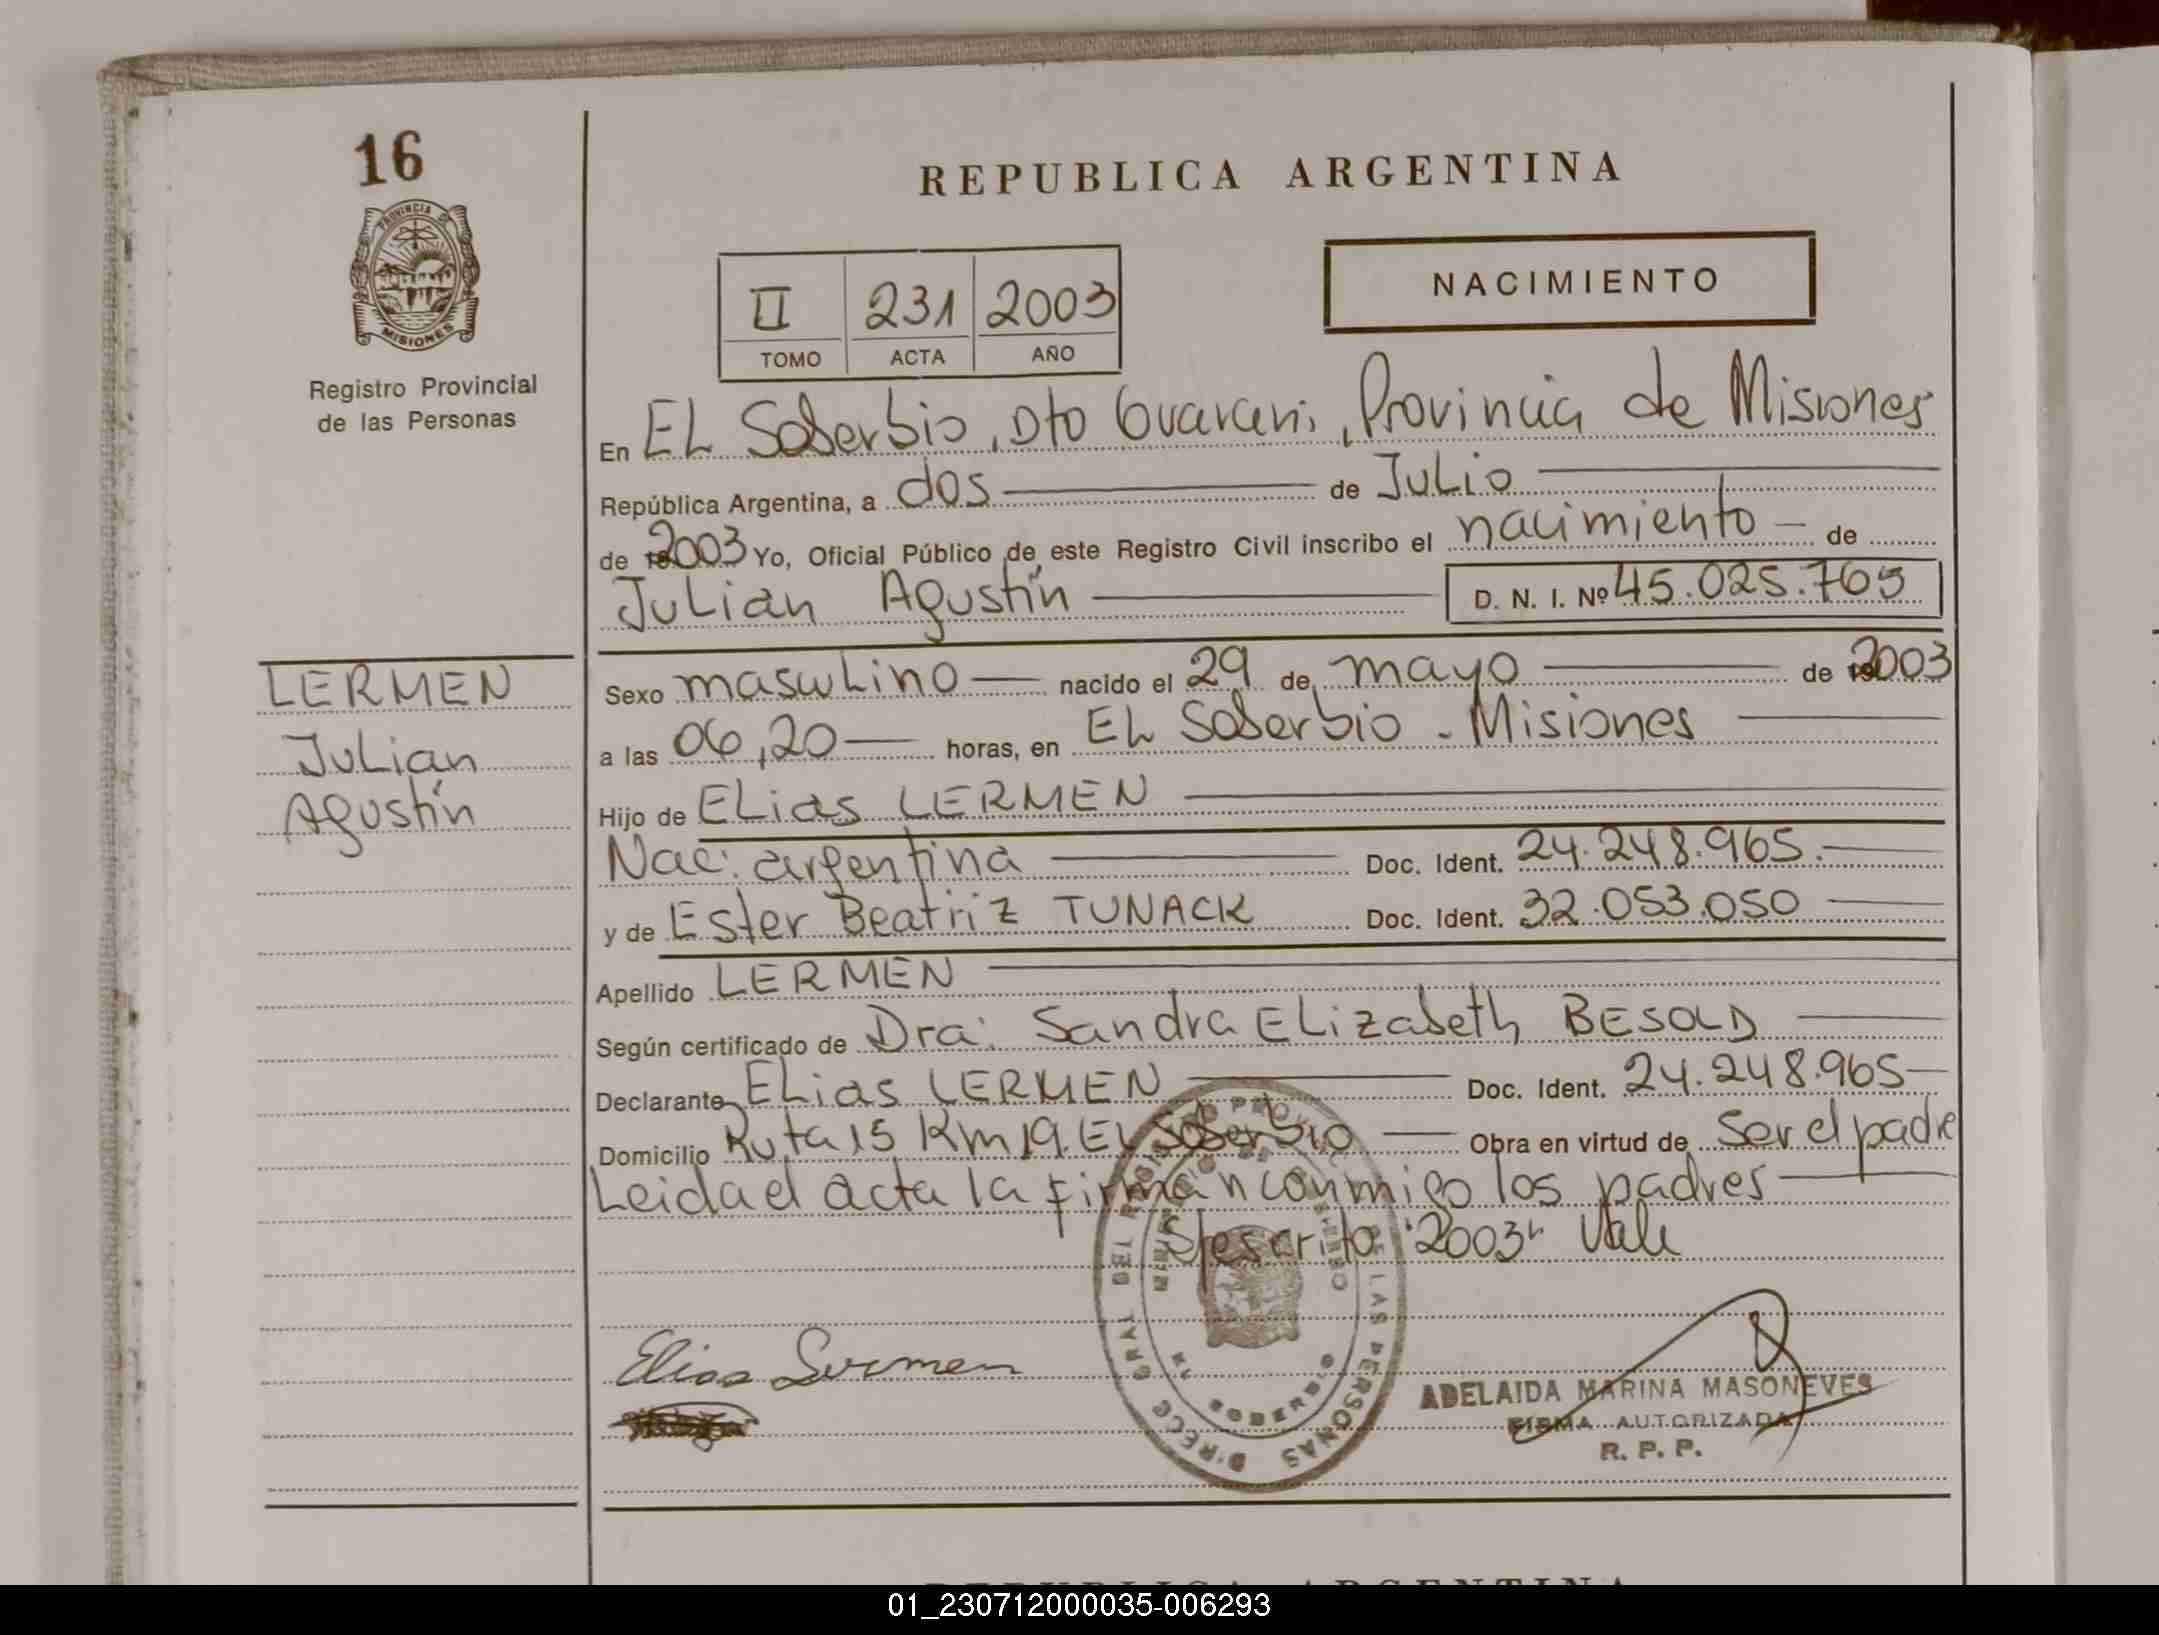 16
PROVINCIA DE
MISIONES
Registro Provincial
de las Personas
REPUBLICA ARGENTINA
II 231 2003
TOMO ACTA AÑO
NACIMIENTO
En EL Soberbio, Dto Guarani, Provincia de Misiones
República Argentina, a dos de Julio
de 2003 Yo, Oficial Público de este Registro Civil inscribo el nacimiento de
Julian Agustín D. N. I. Nº 45.025.765
LERMEN
Julian
Agustín
Sexo masculino nacido el 29 de mayo de 2003
a las 06,20 horas, en EL Soberbio - Misiones
Hijo de Elias LERMEN
Nac: argentina Doc. Ident. 24.248.965.
y de Ester Beatriz TUNACK Doc. Ident. 32.053.050
Apellido LERMEN
Según certificado de Dra: Sandra Elizabeth BESOLD
Declarante Elias LERMEN Doc. Ident. 24.248.965
Domicilio Ruta 15 Km 19. El Soberbio Obra en virtud de Ser el padre
Leida el acta la firman conmigo los padres
S/escrito "2003" Vale
Elias Lermen
ADELAIDA MARINA MASONEVES
FIRMA AUTORIZADA
R. P. P.
REPUBLICA ARGENTINA
01_230712000035-006293